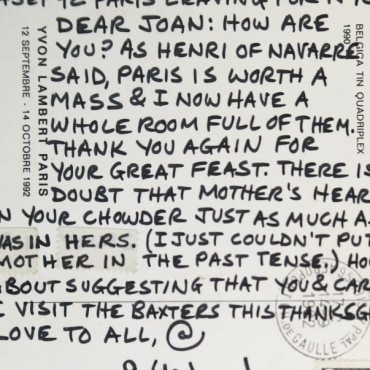 PARIS LEAVING FOR
DEAR JOAN: HOW ARE
YOU? AS HENRI OF NAVARRE
SAID, PARIS IS WORTH A
MASS & I NOW HAVE A
WHOLE ROOM FULL OF THEM.
THANK YOU AGAIN FOR
YOUR GREAT FEAST. THERE IS
DOUBT THAT MOTHER'S HEAR
N YOUR CHOWDER JUST AS MUCH A
WAS IN HERS. (I JUST COULDN'T PUT
MOTHER IN THE PAST TENSE.) HO
ABOUT SUGGESTING THAT YOU & CAR
VISIT THE BAXTERS THIS THANKSG
LOVE TO ALL, @
YVON LAMBERT PARIS
12 SEPTEMBRE - 14 OCTOBRE 1992
BELGICA TIN QUADRIPLEX
1990
DE GAULLE